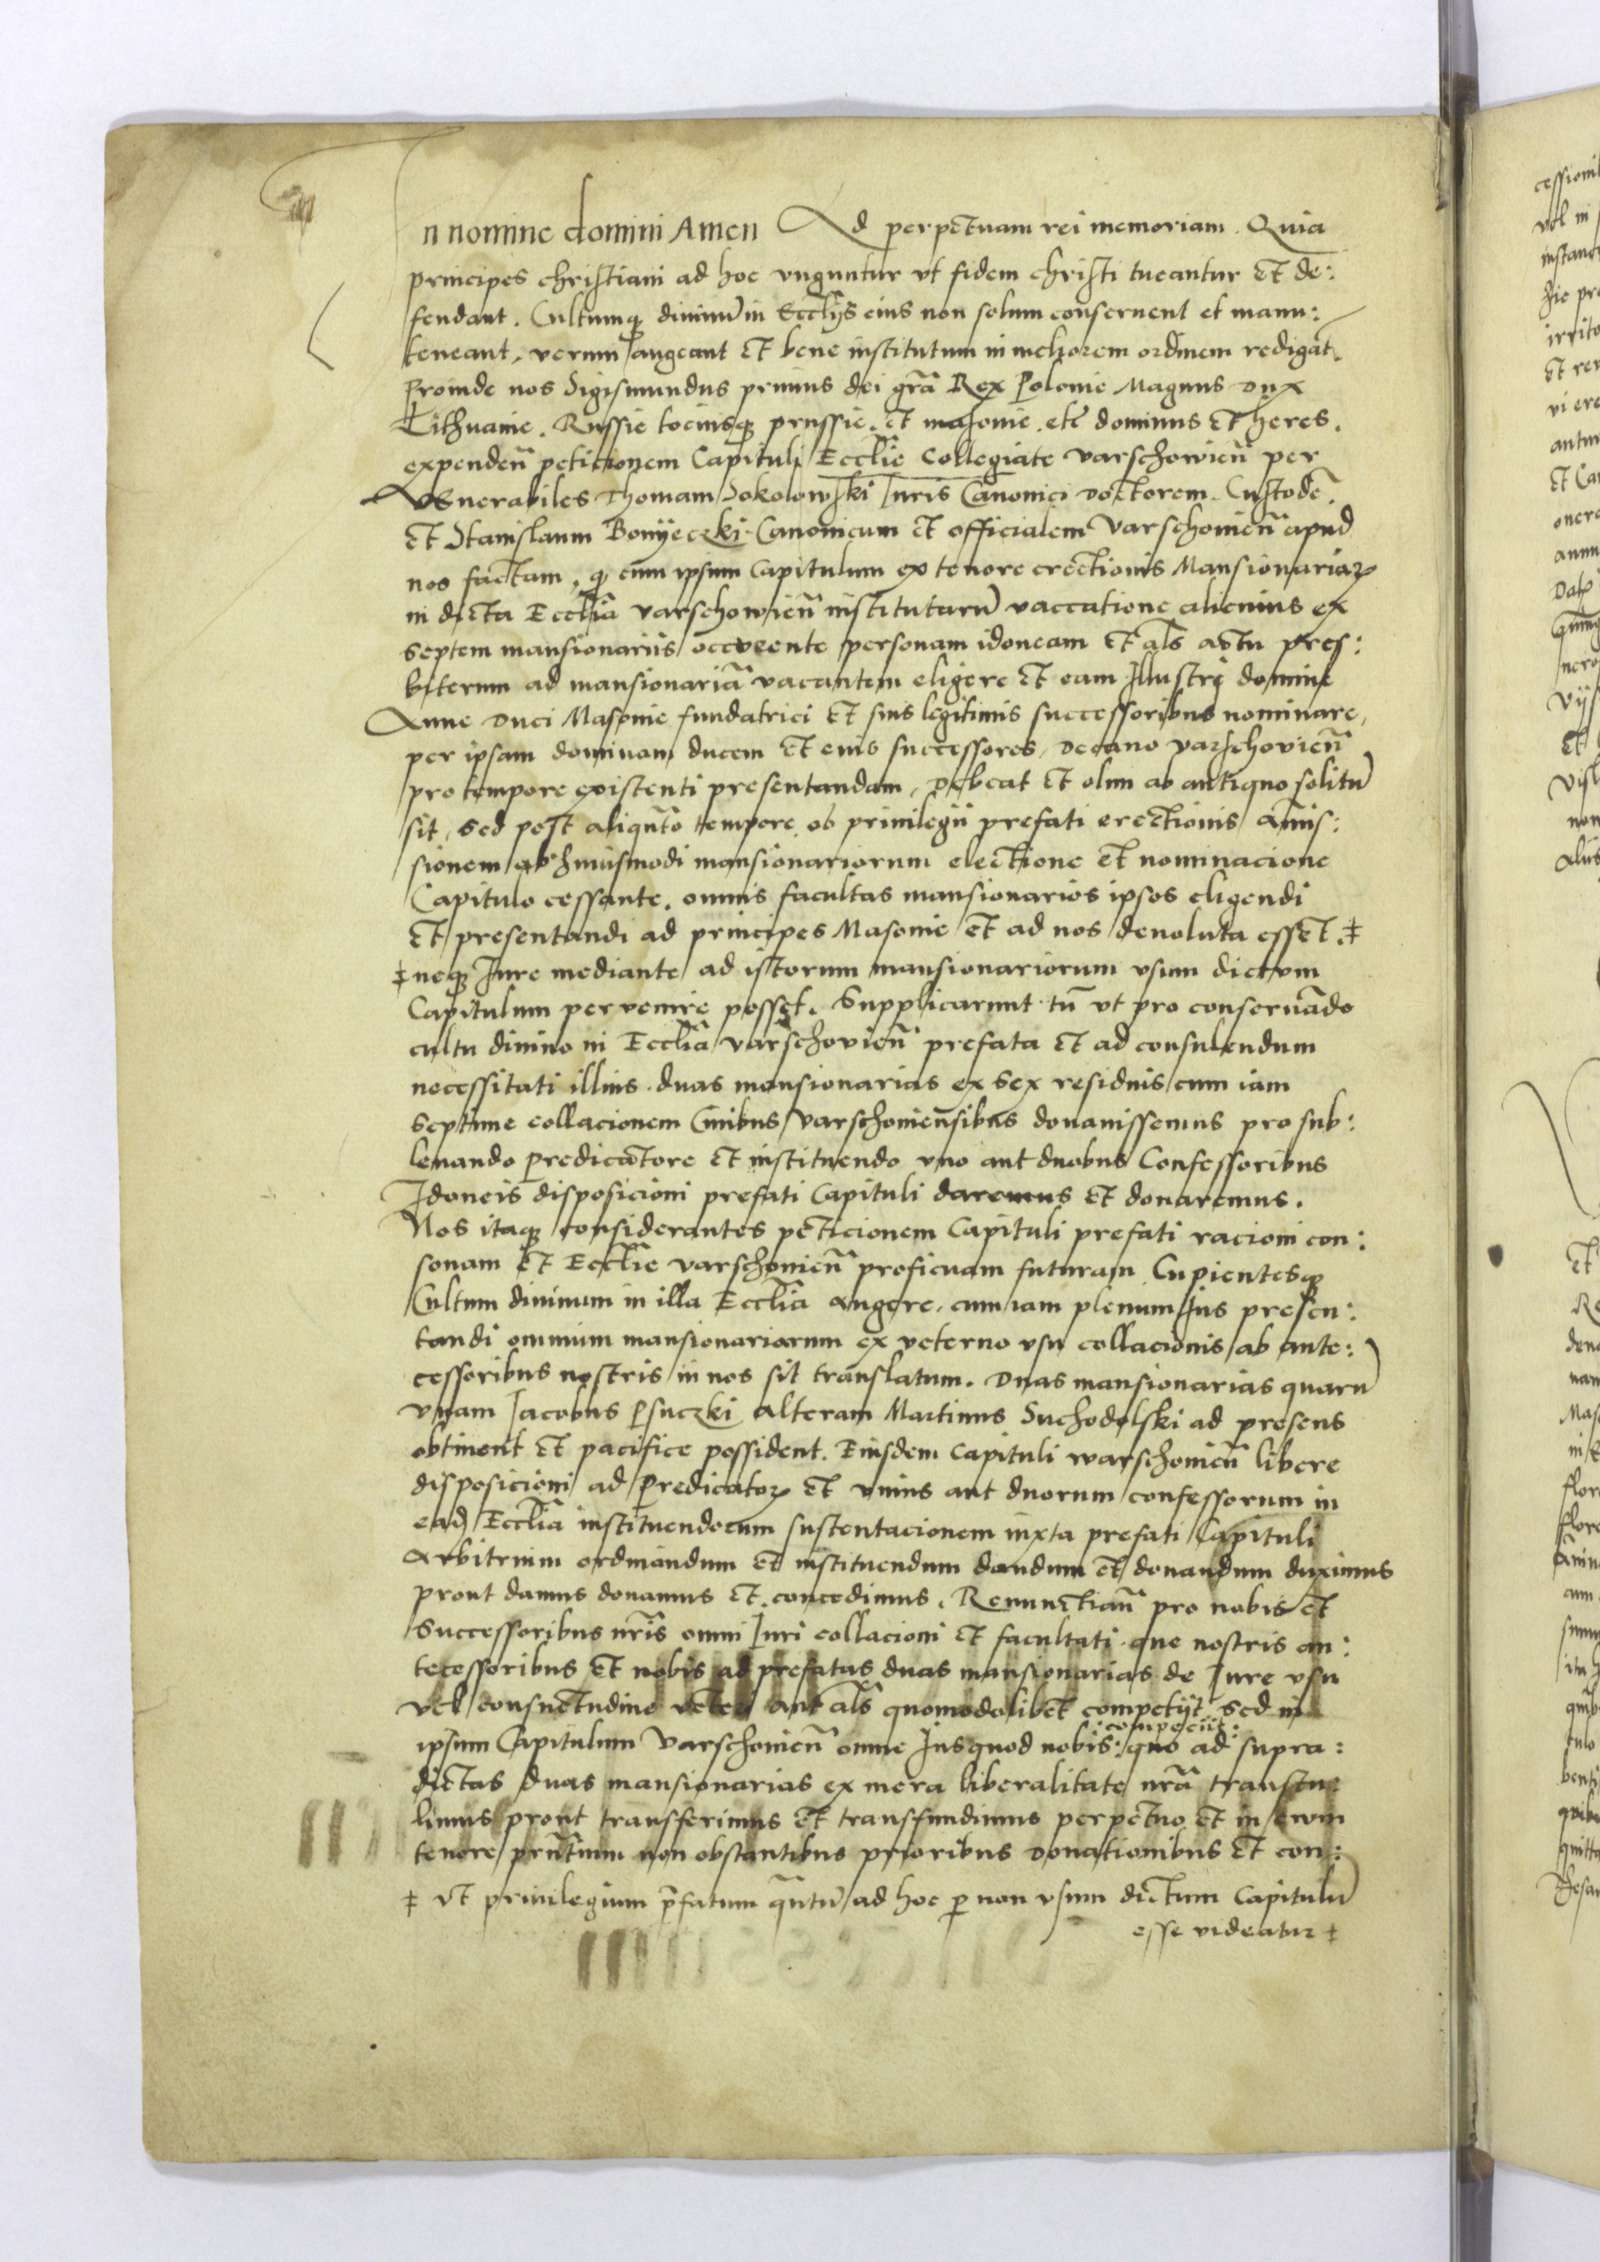 n nomine domini Amen Ad perpetuam rei memoriam. Quia
principes christiani ad hoc vnguntur vt fidem christi tueantur Et de:
fendant. Cultumq; diuinū in Eccliȳs eius non solum conseruent et manu:
teneant, verum augeant Et bene institutum in meliorem ordinem redigāt.
Proinde nos Sigismundus primus dei grā Rex Polonie Magnus Dux
Lithuanie. Russie tociusq; prussie. et masouie. etc dominus Et heres.
expendeñ peticionem Capituli Ecclīe Collegiate varschowieñ per
Venerabiles Thomam Sokolowski Iuris Canonici Doctorem. Custodē.
Et Stanislaum Bonyeczki Canonicum Et officialem Varschouieñ apud
nos factam, q; cum ipsum Capitulum ex tenore erectionis Mansionariaꝝ
in dicta Ecclīa varschowieñ institutarū vaccatione alicuius ex
septem mansionariis occurente personam idoneam Et alš actu pres:
biterum ad mansionariā vacantem eligere Et eam Illustri domine
Anne Duci Masouie fundatrici Et suis legitimis successoribus nominare,
per ipsam dominam ducem Et eius successores, Decano varschouieñ
pro tempore existenti presentandam, Debeat Et olim ab antiquo solitū
sit, Sed post aliqūto tempore ob priuilegii prefati erectionis Amis:
sionem ab huiusmodi mansionariorum electione Et nominacione
Capitulo cessante. omnis facultas mansionarios ipsos eligendi
Et presentandi ad principes Masouie Et ad nos deuoluta esset. ‡
‡ neq; Iure mediante ad istorum mansionariorum vsum dictum
Capitulum peruenire posset. Supplicarunt tñ vt pro conseruādo
cultu diuino in Ecclīa varschouieñ prefata Et ad consulendum
necessitati illius duas mansionarias ex sex residuis cum iam
Septime collacionem Ciuibus varschouieñsibus donauissemus pro sub:
leuando Predicatore Et instituendo vno aut duobus Confessoribus
Idoneis disposicioni prefati Capituli daremus Et donaremus.
Nos itaq; considerantes peticionem Capituli prefati racioni con:
sonam Et Ecclīe varschouieñ proficuam futuram Cupientesq;
Cultum diuinum in illa Ecclīa augere, cum iam plenum Ius presen:
tandi omnium mansionariorum ex veterno vsu collacionis ab ante:
cessoribus nostris in nos sit translatum. Duas mansionarias quarū
vnam Jacobus Psuczki Alteram Martinus Suchodolski ad presens
obtinent Et pacifice possident. Eiusdem Capituli warschouieñ libere
disposicioni ad Predicatoꝝ Et vnius aut duorum confessorum in
eadȝ Ecclīa instituendorum sustentacionem iuxta prefati Capituli
Arbitrium ordinandum et instituendum dandum et donandum duximus
prout damus donamus Et concedimus. Renunctiañ pro nobis et
Successoribus nr̄is omni Iuri collacioni Et facultati que nostris an:
tecessoribus Et nobis ad prefatas duas mansionarias de Iure vsu
vel consuetudine veteri aut alš quomodolibet competijt Sed in
ipsum Capitulum Varschouieñ omne Ius quod nobis :competiit: quo ad supra:
dictas duas mansionarias ex mera liberalitate nrā transtu:
limus prout transferimus Et transfundimus perpetuo et in euum
tenore prn̄tium non obstantibus prioribus Donationibus Et con:
‡ Vt priuilegium p̄fatum qn̄tū ad hoc ꝑ non vsum dictum Capitulū
esse videatur ‡